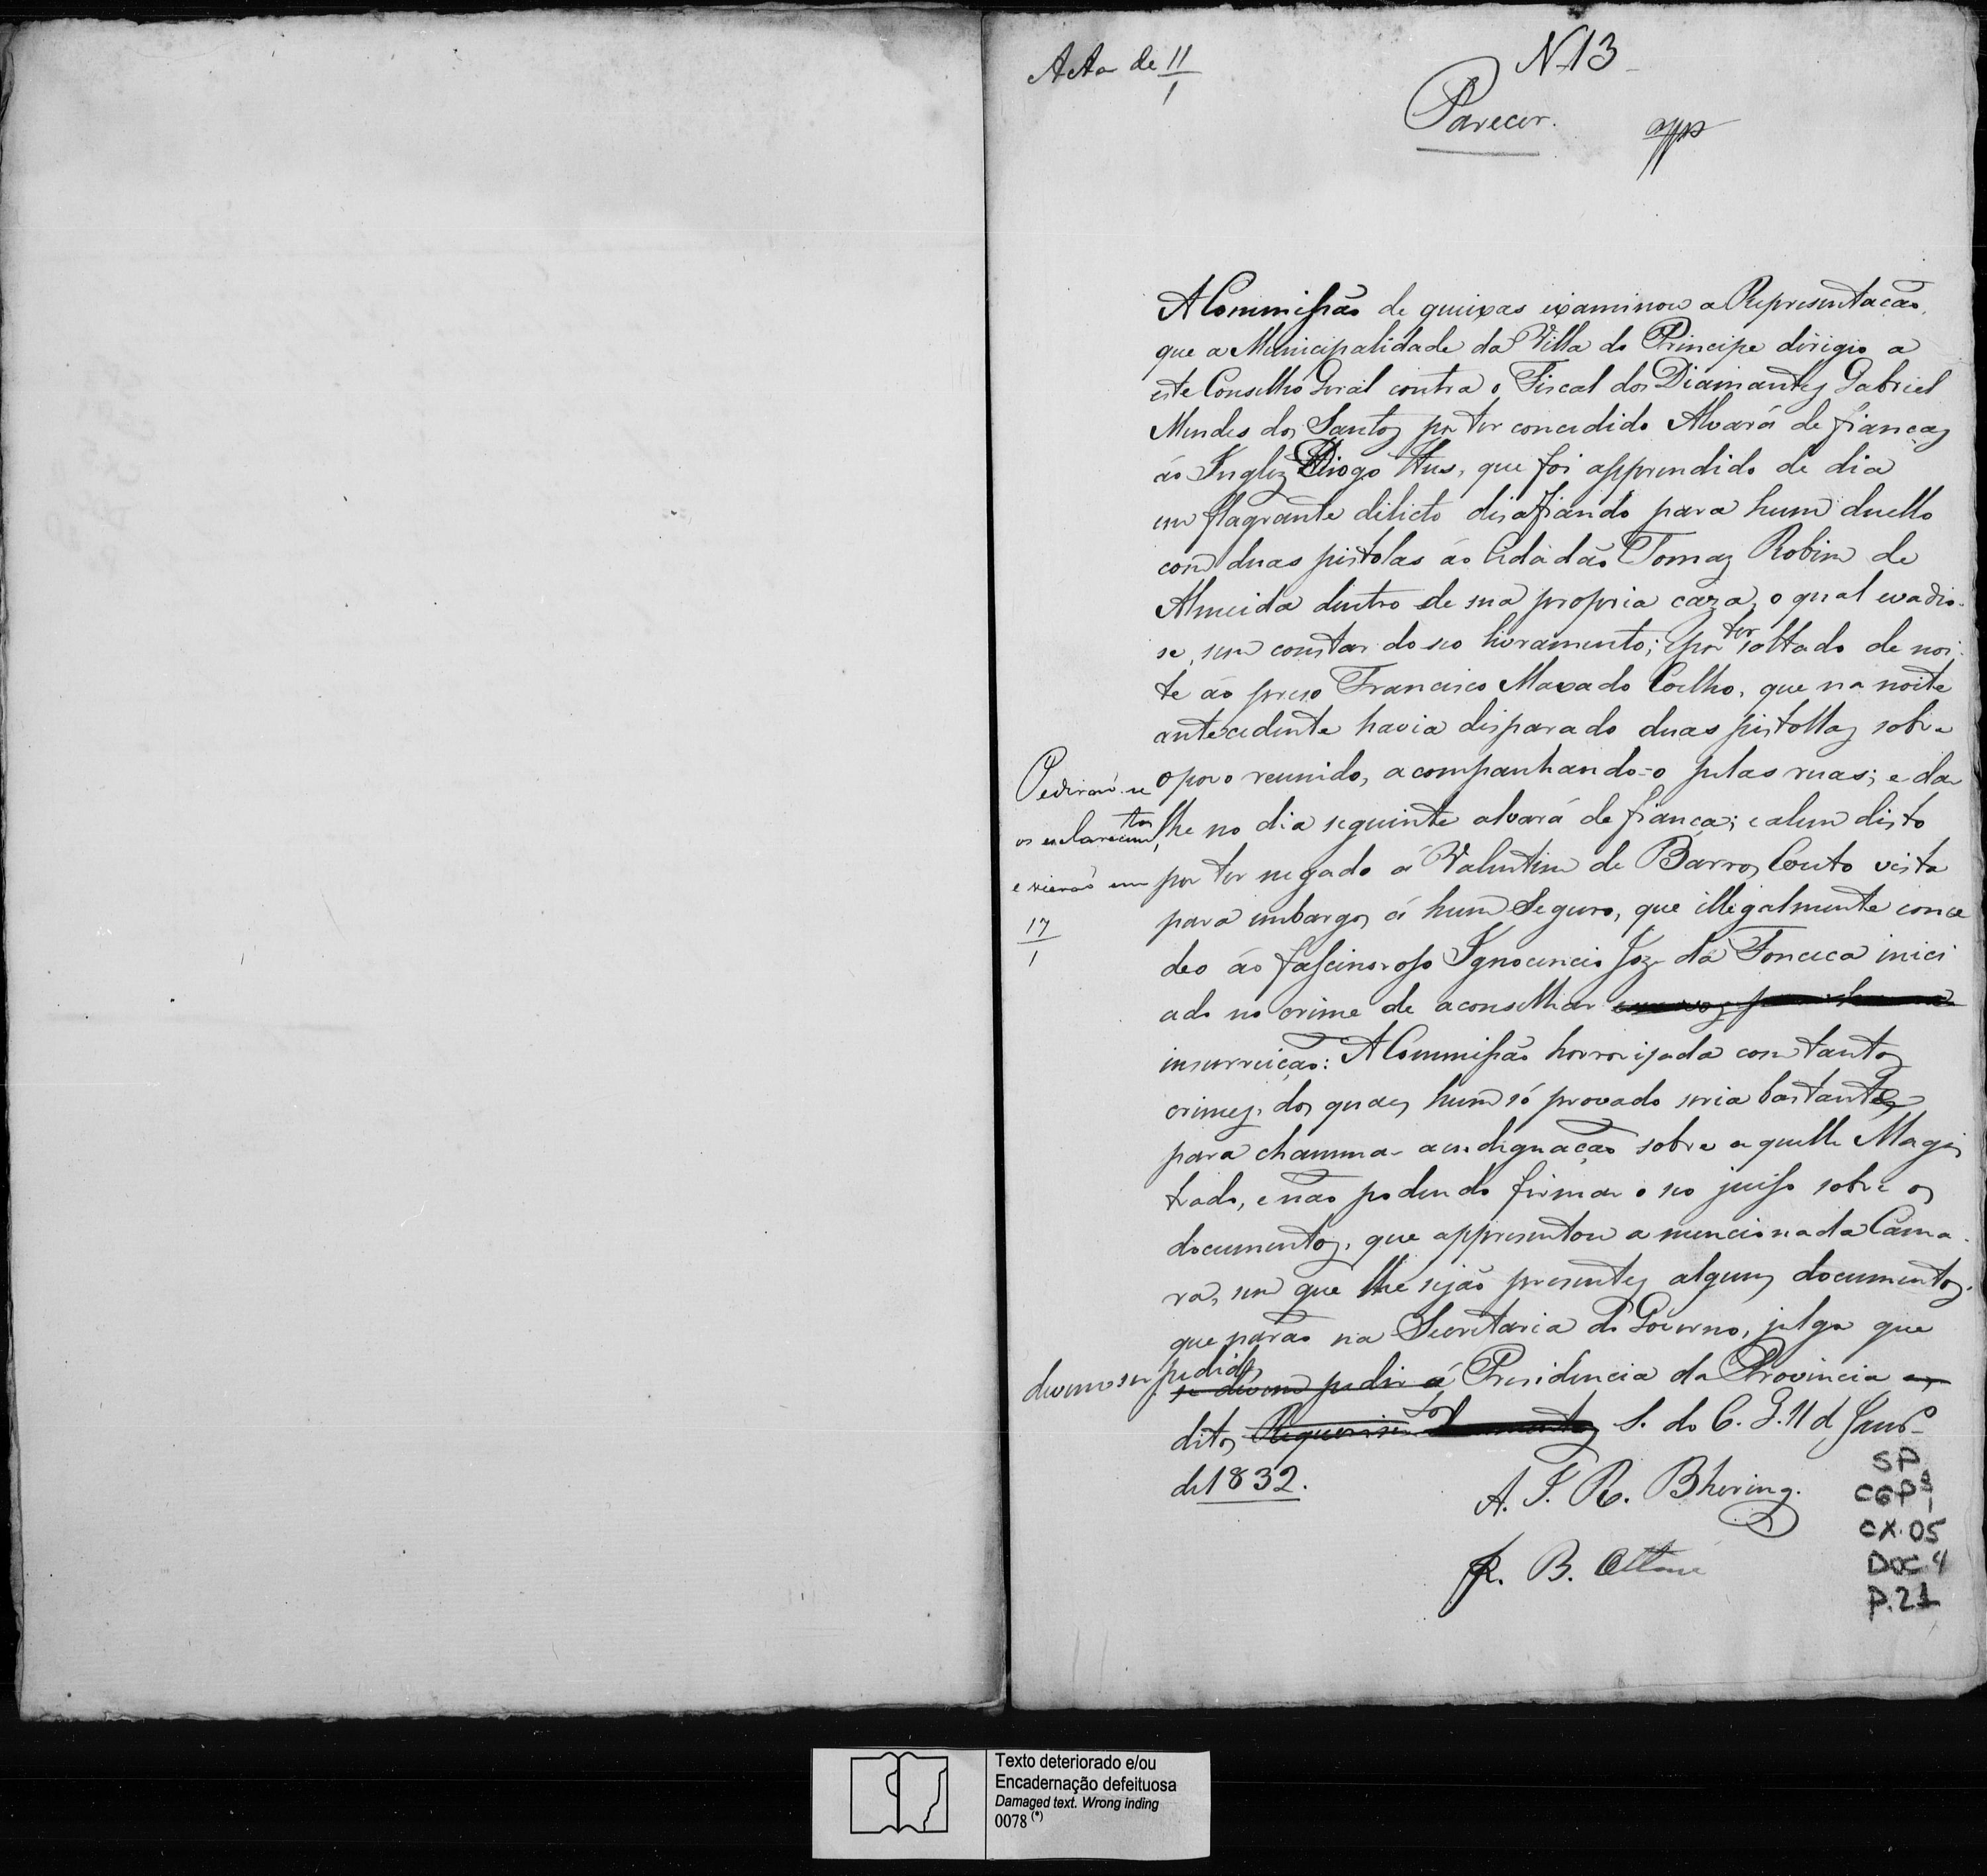 Acta de 11/1
N 13
Parecer.
A Commissão de queixas examinou a Representação,
que a Municipalidade da Villa do Principe dirigio a
este Conselho Geral contra o Fiscal dos Diamantes Gabriel
Mendes dos Santos pr ter concedido Alvará de fianças
ao Inglez Diogo Hus, que foi apprendido de dia
em flagrante delicto desafiando para hum duello
com duas pistolas ao Cidadão Tomaz Robim de
Almeida dentro de sua propria caza, o qual evadio-
se, sem constar do seo livramento; e por ter soltado de noi-
te ao preso Francisco Maxado Coelho, que na noite
antecedente havia disparado duas pistollas sobre
o povo reunido, acompanhando-o pelas ruas; e dar
lhe no dia seguinte alvará de fiança; e alem disto
por ter negado a Valentim de Barros Couto vista
para embargos á hum Seguro, que illegalmente conce
deo ao fascinoroso Ignocencio Joze da Fonceca inici
ado no crime de aconselhar
insurreição: A Commissão horrorizada com tantos
crimes, dos quaes hum só provado seria bastante
para chammar a indignação sobre aquelle Magis
trado, e não podendo firmar o seo juiso sobre os
documentos, que appresentou a mencionada Cama-
ra, sem que lhe sejão presentes alguns documentos,
que parão na Secretaria do Governo, julga que
devem ser pedidos
se devem pedir á Presidencia da Provincia os
ditos S. do C. G. 11 d Janro
de 1832.
A. J. R. Bhering.
J. B. Ottoni
Pedirão-se
os esclarecimtos,
e vierão em
17/1
SP
CGP 1
CX. 05
DOC 4
P. 21
Texto deteriorado e/ou
Encadernação defeituosa
Damaged text. Wrong inding
0078 (*)